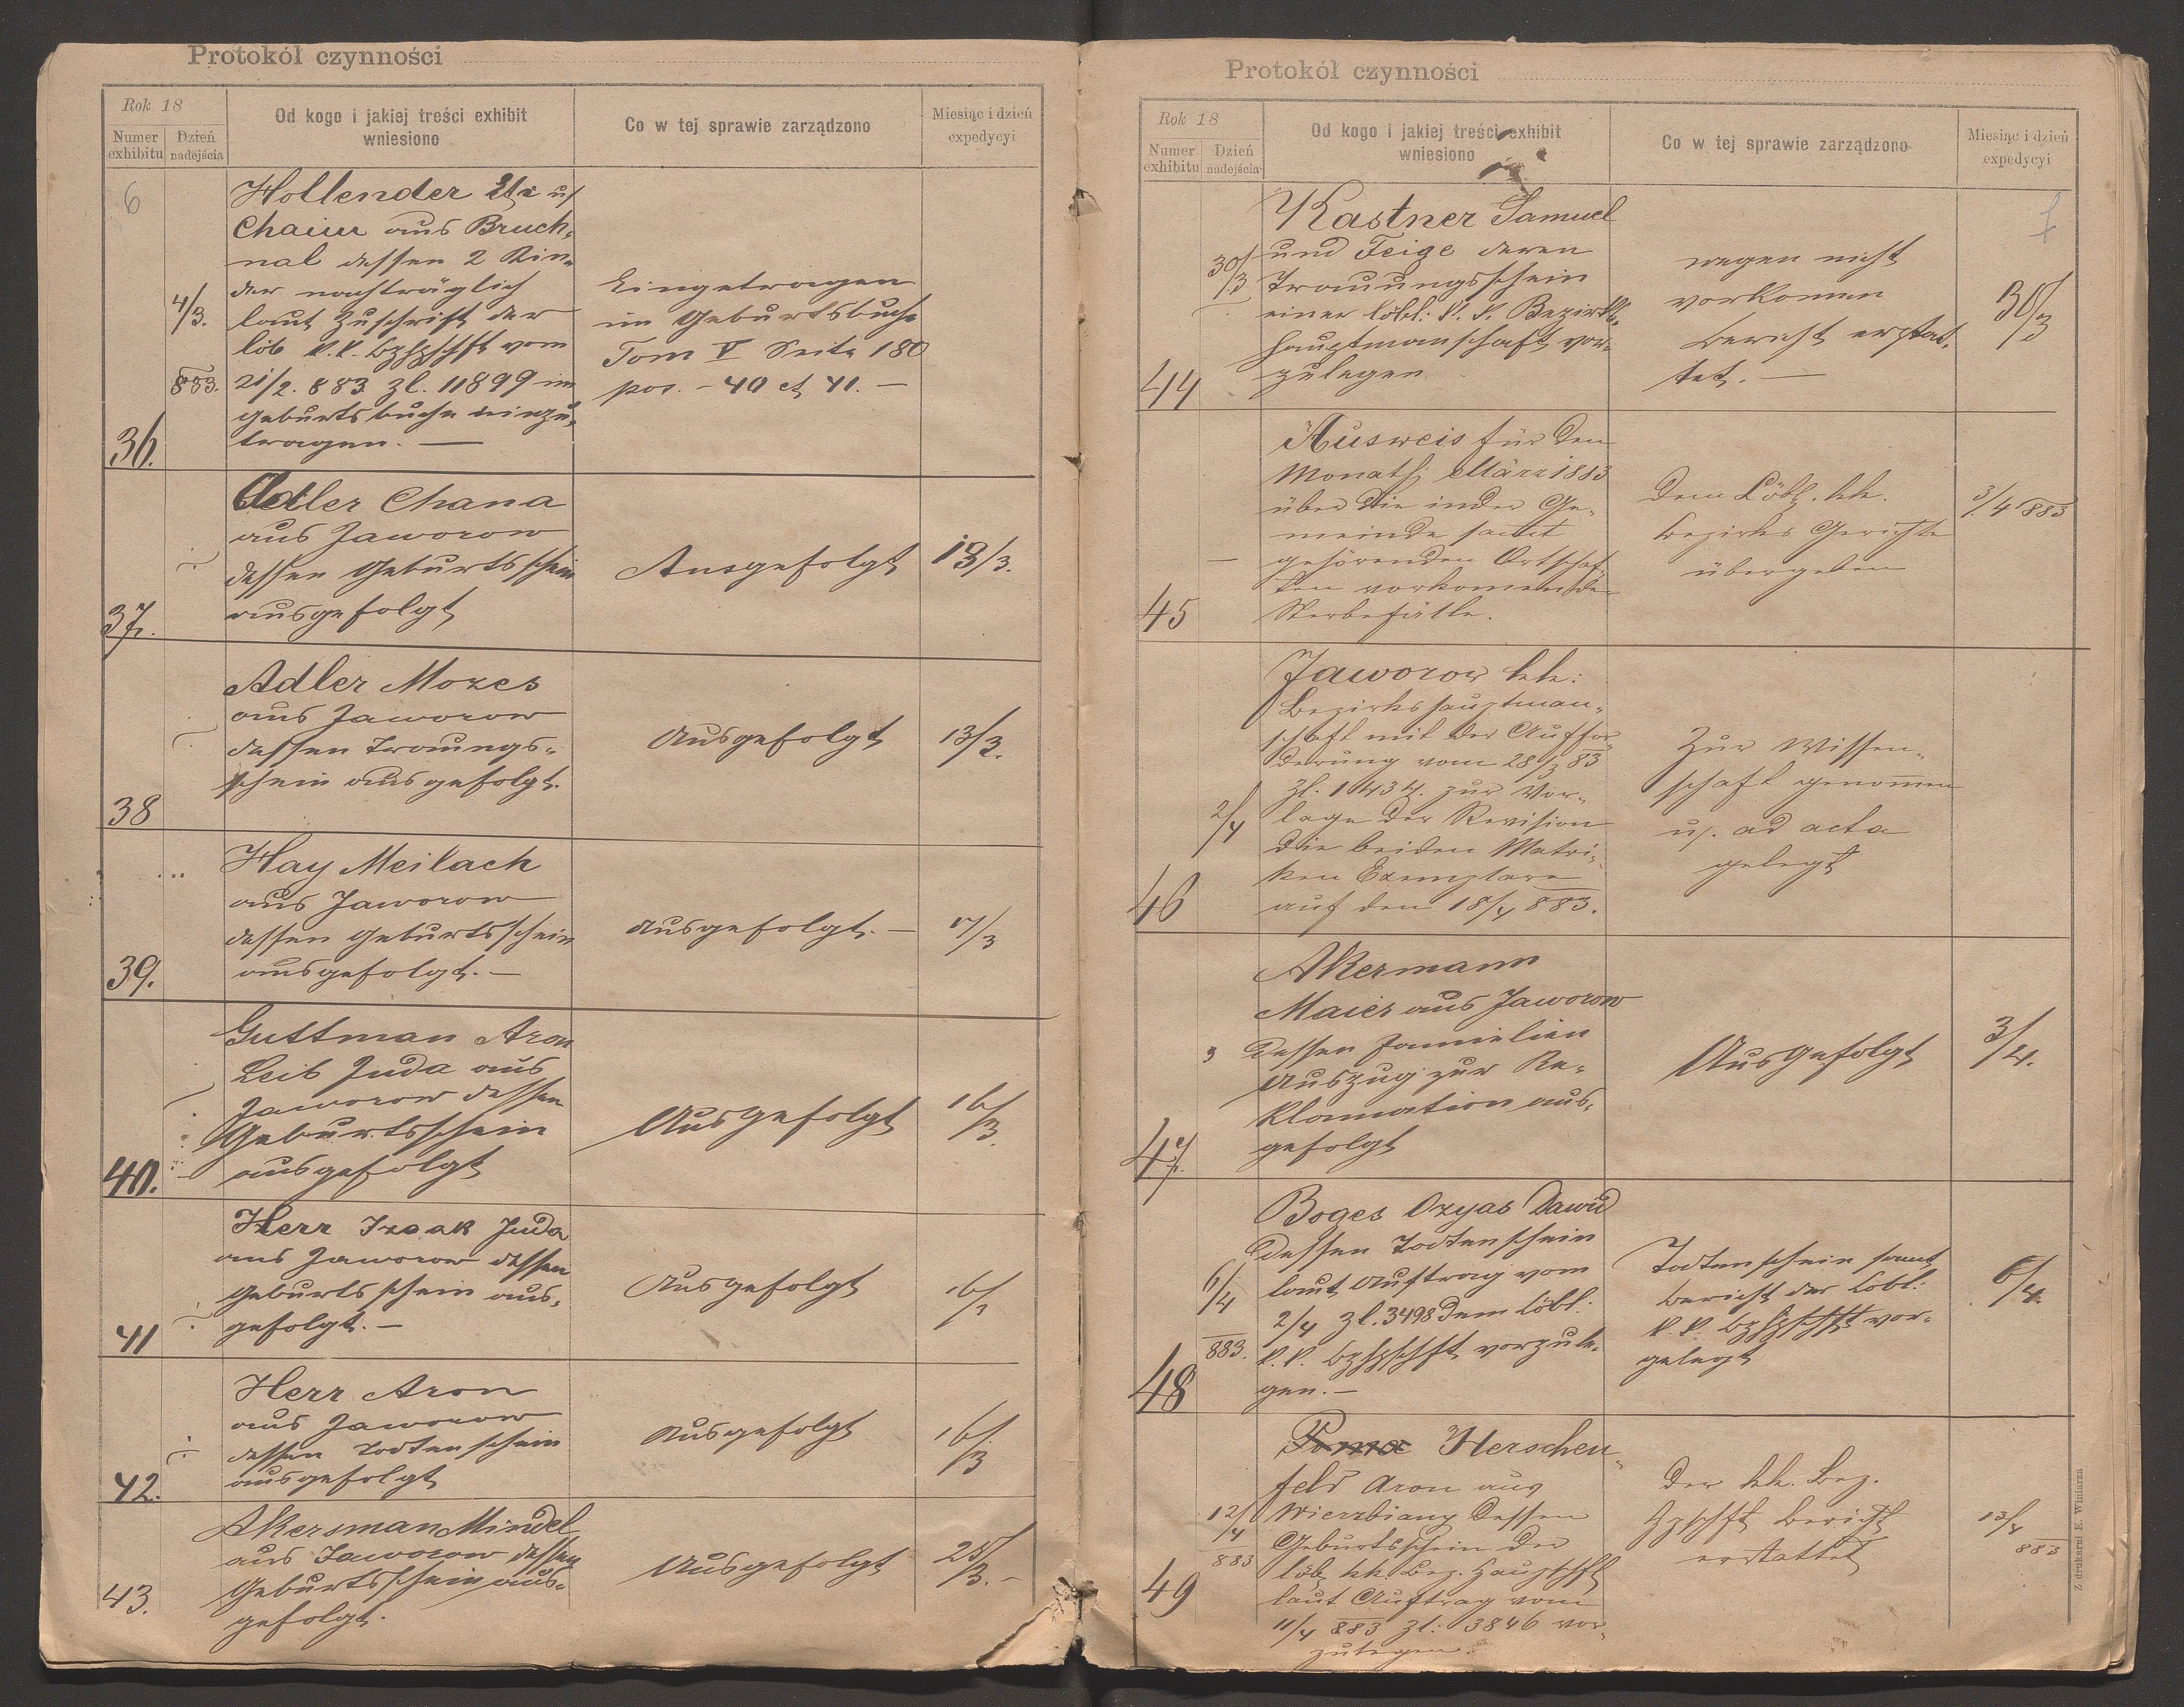 Protokół czynności
Rok 18
Numer exhibitu
Dzień nadejścia
Od kogo i jakiej treści exhibit wniesiono
Co w tej sprawie zarządzono
Miesiąc i dzień expedycyi
6
36.
4/3. 883.
Hollender
Chaim aus Bruch-
nal dessen 2 Kin-
der nachträglich
laut Zuschrift der
löb k.k. Bzhptschft vom
21/2. 883 Zl. 11899 im
Geburtsbuche einzu-
tragen. —
Eingetragen
im Geburtsbuche
Tom V Seite 180
pos. - 40 et 41. —
37.
Adler Chana
aus Jaworow
dessen Geburtsschein
ausgefolgt
Ausgefolgt
13/3.
38
Adler Mozes
aus Jaworow
dessen Trauungs-
schein ausgefolgt.
Ausgefolgt
13/3.
39.
Hay Meilach
aus Jaworow
dessen Geburtsschein
ausgefolgt. —
Ausgefolgt. —
17/3
40.
Guttman Aron
Leib Juda aus
Jaworow dessen
Geburtsschein
ausgefolgt
Ausgefolgt
16/3.
41
Herr Izaak Juda
aus Jaworow dessen
Geburtsschein aus-
gefolgt. —
Ausgefolgt
16/3
42.
Herr Aron
aus Jaworow
dessen Todtenschein
ausgefolgt
Ausgefolgt
16/3
43.
Akersman Mindel
aus Jaworow dessen
Geburtsschein aus-
gefolgt.
Ausgefolgt
25/3. -
Protokół czynności
Rok 18
Numer exhibitu
Dzień nadejścia
Od kogo i jakiej treści exhibit wniesiono
Co w tej sprawie zarządzono
Miesiąc i dzień expedycyi
7
44
30/3
Kastner Samuel
und Feige deren
Trauungsschein
einer löbl: k. k. Bezirks-
hauptmanschaft vor-
zulegen
wegen nicht
vorkomen
Bericht erstat-
tet. —
30/3
45
—
Ausweis für den
Monath März 1883
über die in der Ge-
meinde samt
gehörenden Ortschaf-
ten vorkomende
Sterbefälle.
Dem Löbl. kk.
Bezirks Gerichte
übergeben
3/4 883
46
2/4
Jaworow kk:
Bezirkshauptman-
schaft mit der Auffor-
derung vom 28/3 83
Zl. 1434. zur Vor-
lage der Revision
die beiden Matri-
ken Exemplare
auf den 18/4 883.
Zur Wissen-
schaft genomen
u. ad acta
gelegt
47.
3
Akermann
Maier aus Jaworow
dessen Familien
Auszug zur Re-
klamation aus-
gefolgt
Ausgefolgt
3/4.
48
6/4 883.
Boges Ozyas Dawid
dessen Todtenschein
laut Auftrag vom
2/4 Zl. 3498 dem löbl.
k. k. Bzhptschft vorzule-
gen. —
Todtenschein samt
Bericht der löbl.
k. k. Bzhptschft vor-
gelegt
6/4.
49
12/4 883
Herschen-
feld Aron aus
Wierzbiany dessen
Geburtsschein der
löb. kk. Bez. Hauptschft
laut Auftrag vom
11/4 883 Zl: 3846 vor-
zulegen.
Der kk. Bez.
Hptschft Bericht
erstattet
13/4 883
Z drukarni E. Winiarza